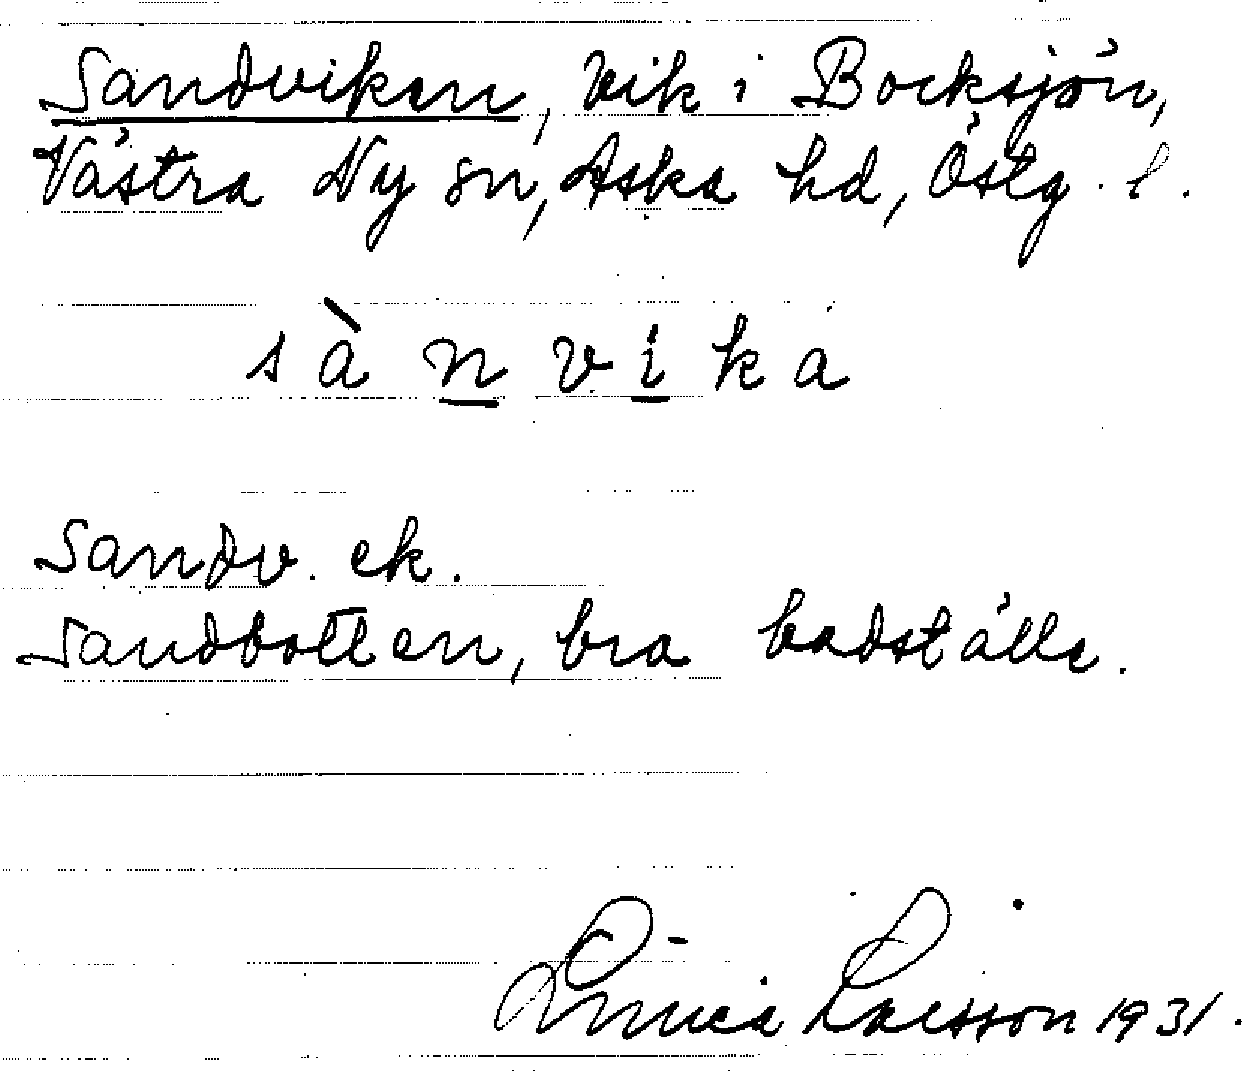 Sandviken, vik i Bocksjön,
Västra Ny sn, Aska hd, Östg. l.
sànvika
Sandv. ek.
Sandbotten, bra badställe.
Linnea Larsson 1931.